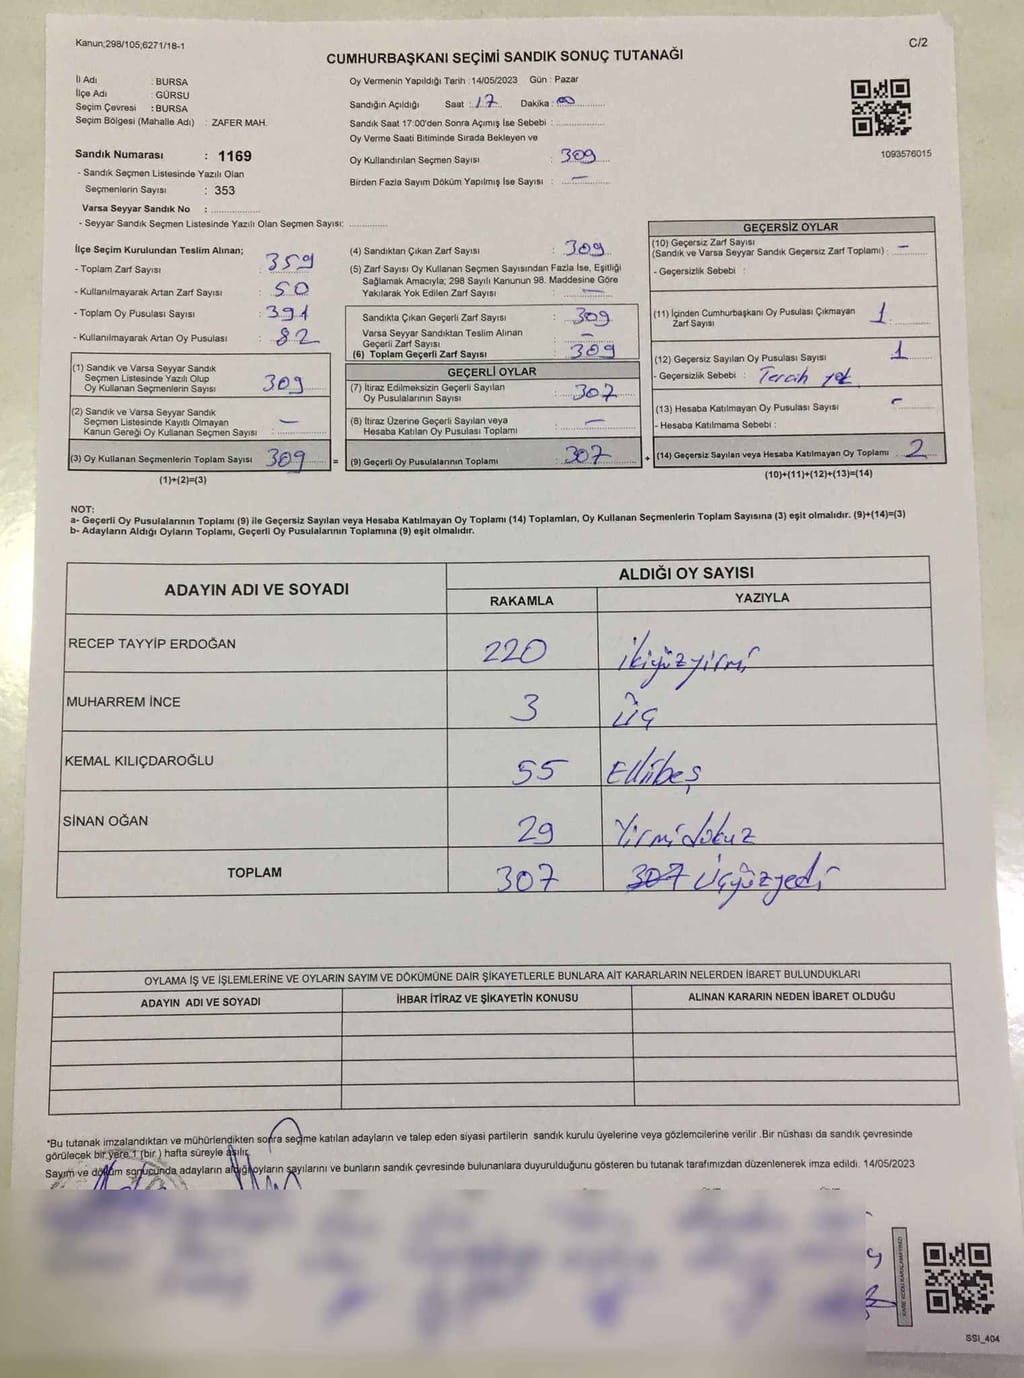 Kanun;298/105,6271/18-1
C/2
CUMHURBAŞKANI SEÇİMİ SANDIK SONUÇ TUTANAĞI
İl Adı : BURSA
İlçe Adı : GÜRSU
Seçim Çevresi : BURSA
Seçim Bölgesi (Mahalle Adı) : ZAFER MAH.
Sandık Numarası : 1169
- Sandık Seçmen Listesinde Yazılı Olan
Seçmenlerin Sayısı : 353
Varsa Seyyar Sandık No : ................
- Seyyar Sandık Seçmen Listesinde Yazılı Olan Seçmen Sayısı: ..............
Oy Vermenin Yapıldığı Tarih : 14/05/2023 Gün : Pazar
Sandığın Açıldığı Saat : 17 Dakika : 00
Sandık Saat 17:00'den Sonra Açımış İse Sebebi : ................
Oy Verme Saati Bitiminde Sırada Bekleyen ve
Oy Kullandırılan Seçmen Sayısı : 309
Birden Fazla Sayım Döküm Yapılmış İse Sayısı : —
1093576015
İlçe Seçim Kurulundan Teslim Alınan;
- Toplam Zarf Sayısı : 359
- Kullanılmayarak Artan Zarf Sayısı : 50
- Toplam Oy Pusulası Sayısı : 391
- Kullanılmayarak Artan Oy Pusulası : 82
(1) Sandık ve Varsa Seyyar Sandık
Seçmen Listesinde Yazılı Olup
Oy Kullanan Seçmenlerin Sayısı : 309
(2) Sandık ve Varsa Seyyar Sandık
Seçmen Listesinde Kayıtlı Olmayan
Kanun Gereği Oy Kullanan Seçmen Sayısı : —
(3) Oy Kullanan Seçmenlerin Toplam Sayısı 309
(1)+(2)=(3)
(4) Sandıktan Çıkan Zarf Sayısı : 309
(5) Zarf Sayısı Oy Kullanan Seçmen Sayısından Fazla İse, Eşitliği
Sağlamak Amacıyla; 298 Sayılı Kanunun 98. Maddesine Göre
Yakılarak Yok Edilen Zarf Sayısı : —
Sandıkta Çıkan Geçerli Zarf Sayısı : 309
Varsa Seyyar Sandıktan Teslim Alınan
Geçerli Zarf Sayısı : —
(6) Toplam Geçerli Zarf Sayısı : 309
GEÇERLİ OYLAR
(7) İtiraz Edilmeksizin Geçerli Sayılan
Oy Pusulalarının Sayısı : 307
(8) İtiraz Üzerine Geçerli Sayılan veya
Hesaba Katılan Oy Pusulaları Toplamı : —
= (9) Geçerli Oy Pusulalarının Toplamı : 307
GEÇERSİZ OYLAR
(10) Geçersiz Zarf Sayısı
(Sandık ve Varsa Seyyar Sandık Geçersiz Zarf Toplamı) : —
- Geçersizlik Sebebi :
(11) İçinden Cumhurbaşkanı Oy Pusulası Çıkmayan
Zarf Sayısı : 1
(12) Geçersiz Sayılan Oy Pusulası Sayısı : 1
- Geçersizlik Sebebi : Tercih yok
(13) Hesaba Katılmayan Oy Pusulası Sayısı : —
- Hesaba Katılmama Sebebi :
+ (14) Geçersiz Sayılan veya Hesaba Katılmayan Oy Toplamı : 2
(10)+(11)+(12)+(13)=(14)
NOT:
a- Geçerli Oy Pusulalarının Toplamı (9) ile Geçersiz Sayılan veya Hesaba Katılmayan Oy Toplamı (14) Toplamları, Oy Kullanan Seçmenlerin Toplam Sayısına (3) eşit olmalıdır. (9)+(14)=(3)
b- Adayların Aldığı Oyların Toplamı, Geçerli Oy Pusulalarının Toplamına (9) eşit olmalıdır.
ADAYIN ADI VE SOYADI
ALDIĞI OY SAYISI
RAKAMLA YAZIYLA
RECEP TAYYİP ERDOĞAN 220 İkiyüzyirmi
MUHARREM İNCE 3 Üç
KEMAL KILIÇDAROĞLU 55 Ellibeş
SİNAN OĞAN 29 Yirmidokuz
TOPLAM 307 307 Üçyüzyedi
OYLAMA İŞ VE İŞLEMLERİNE VE OYLARIN SAYIM VE DÖKÜMÜNE DAİR ŞİKAYETLERLE BUNLARA AİT KARARLARIN NELERDEN İBARET BULUNDUKLARI
ADAYIN ADI VE SOYADI İHBAR İTİRAZ VE ŞİKAYETİN KONUSU ALINAN KARARIN NEDEN İBARET OLDUĞU
*Bu tutanak imzalandıktan ve mühürlendikten sonra seçime katılan adayların ve talep eden siyasi partilerin sandık kurulu üyelerine veya gözlemcilerine verilir .Bir nüshası da sandık çevresinde
görülecek bir yere 1 (bir ) hafta süreyle asılır.
Sayım ve döküm sonucunda adayların aldığı oyların sayılarını ve bunların sandık çevresinde bulunanlara duyurulduğunu gösteren bu tutanak tarafımızdan düzenlenerek imza edildi. 14/05/2023
SSİ_404